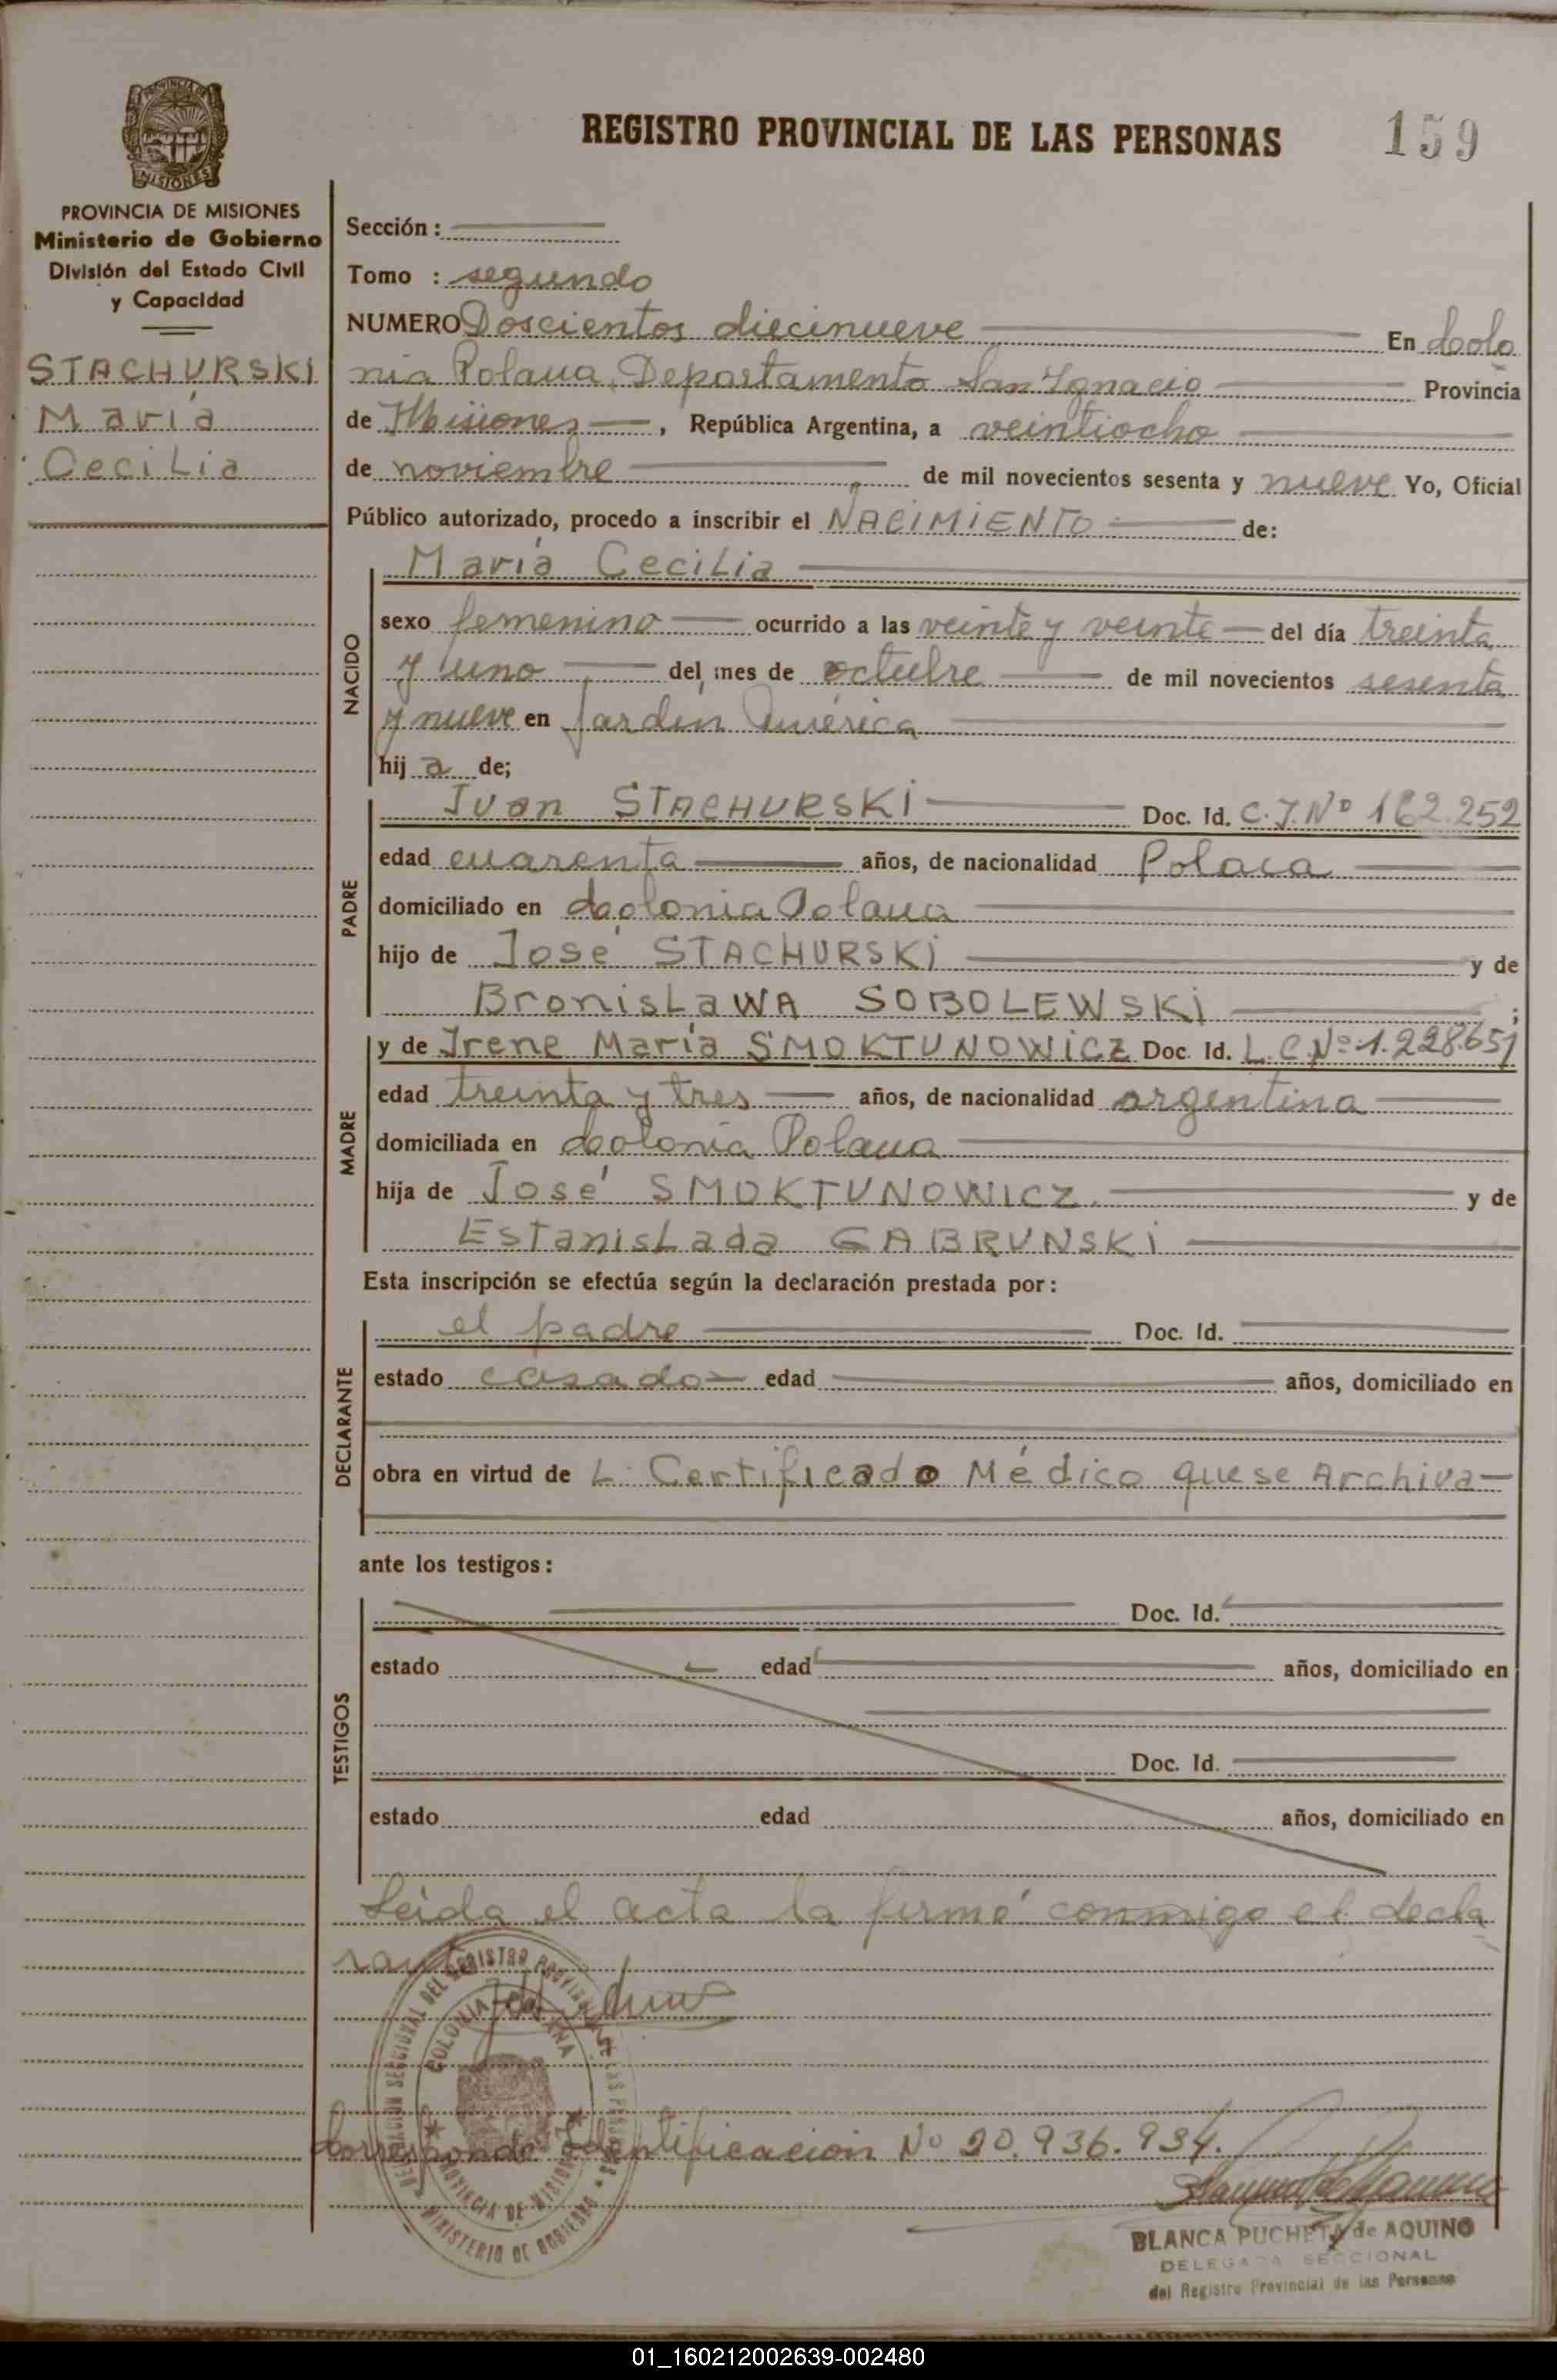 REGISTRO PROVINCIAL DE LAS PERSONAS
159
MISIONES
PROVINCIA DE MISIONES
Ministerio de Gobierno
División del Estado Civil
y Capacidad
STACHURSKI
María
Cecilia
Sección :
Tomo : segundo
NUMERO Doscientos diecinueve En Colo
nia Polana, Departamento San Ignacio Provincia
de Misiones, República Argentina, a veintiocho
de noviembre de mil novecientos sesenta y nueve Yo, Oficial
Público autorizado, procedo a inscribir el NACIMIENTO de:
NACIDO
María Cecilia
sexo femenino ocurrido a las veinte y veinte del día treinta
y uno del mes de octubre de mil novecientos sesenta
y nueve en Jardín América
hija de;
PADRE
Ivan STACHURSKI Doc. Id. C.I.Nº 162.252
edad cuarenta años, de nacionalidad Polaca
domiciliado en Colonia Polana
hijo de José STACHURSKI y de
BronisLaWA SOBOLEWSKI ;
MADRE
y de Irene María SMOKTUNOWICZ Doc. Id. L.C.Nº 1.228.651
edad treinta y tres años, de nacionalidad argentina
domiciliada en Colonia Polana
hija de José SMOKTUNOWICZ. y de
EstanisLada GABRUNSKI
Esta inscripción se efectúa según la declaración prestada por:
DECLARANTE
el padre Doc. Id.
estado casado edad años, domiciliado en
obra en virtud de L. Certificado Médico que se Archiva
ante los testigos:
TESTIGOS
Doc. Id.
estado edad años, domiciliado en
Doc. Id.
estado edad años, domiciliado en
Leida el acta la firmó conmigo el decla
rante
COLONIA POLANA
PROVINCIA DE MISIONES
MINISTERIO DE GOBIERNO
Corresponde Identificación Nº 20.936.934.
BLANCA PUCHETA de AQUINO
DELEGADA SECCIONAL
del Registro Provincial de las Personas
01_160212002639-002480